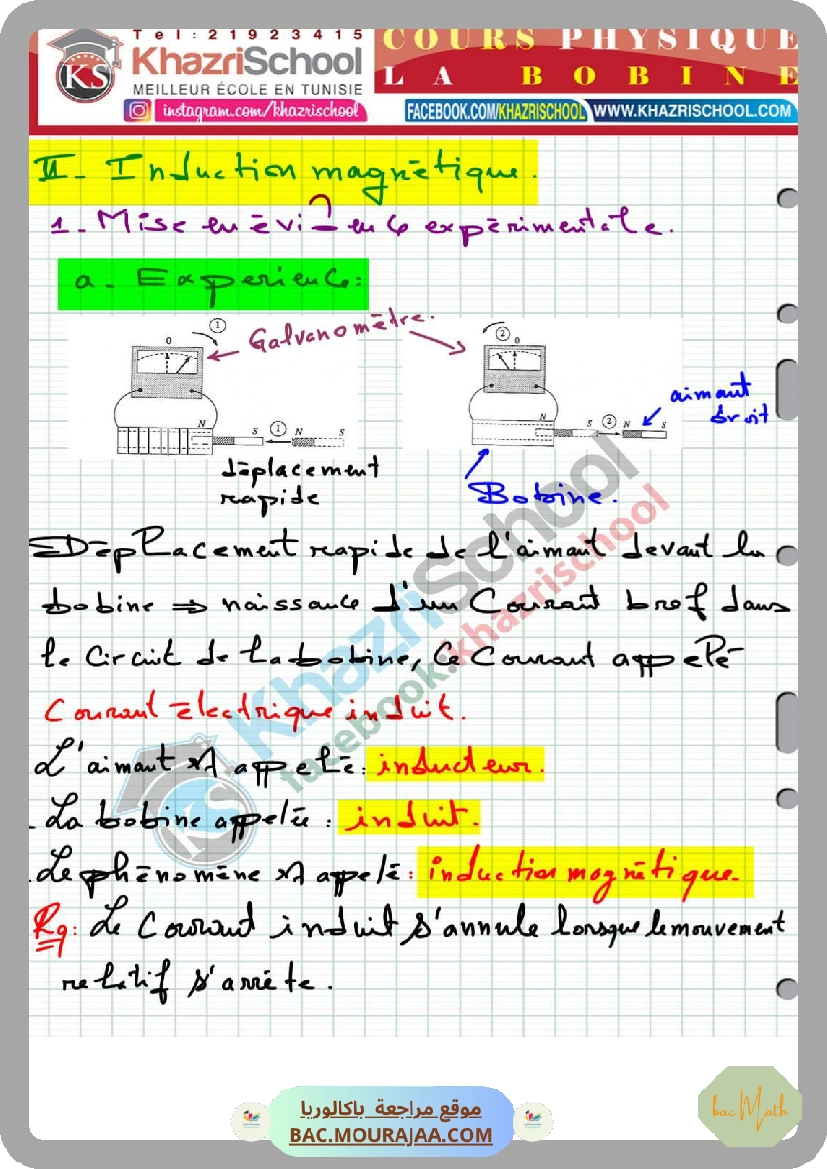 Tel:21923415
KhazriSchool
MEILLEUR ÉCOLE EN TUNISIE
instagram.com/khazrischool
COURS PHYSIQUE
LA BOBINE
FACEBOOK.COM/KHAZRISCHOOL WWW.KHAZRISCHOOL.COM
KS
II- Induction magnétique.
1- Mise en évidence expérimentale.
a- Experience:
Galvanomètre.
1
0
N S 1 N S
déplacement
rapide
2
0
N S 2 N S
aimant
droit
Bobine.
Déplacement rapide de l'aimant devant la
bobine ⇒ naissance d'un Courant bref dans
le Circuit de la bobine, Ce Courant appelé
Courant électrique induit.
L'aimant est appelé: inducteur.
- La bobine appelée : induit.
. Le phénomène est appelé: induction magnétique.
Rq: Le Courant induit s'annule lorsque le mouvement
relatif s'arrête.
KhazriSchool
facebook.khazrischool
KS
موقع مراجعة باكالوريا
BAC.MOURAJAA.COM
bac Math